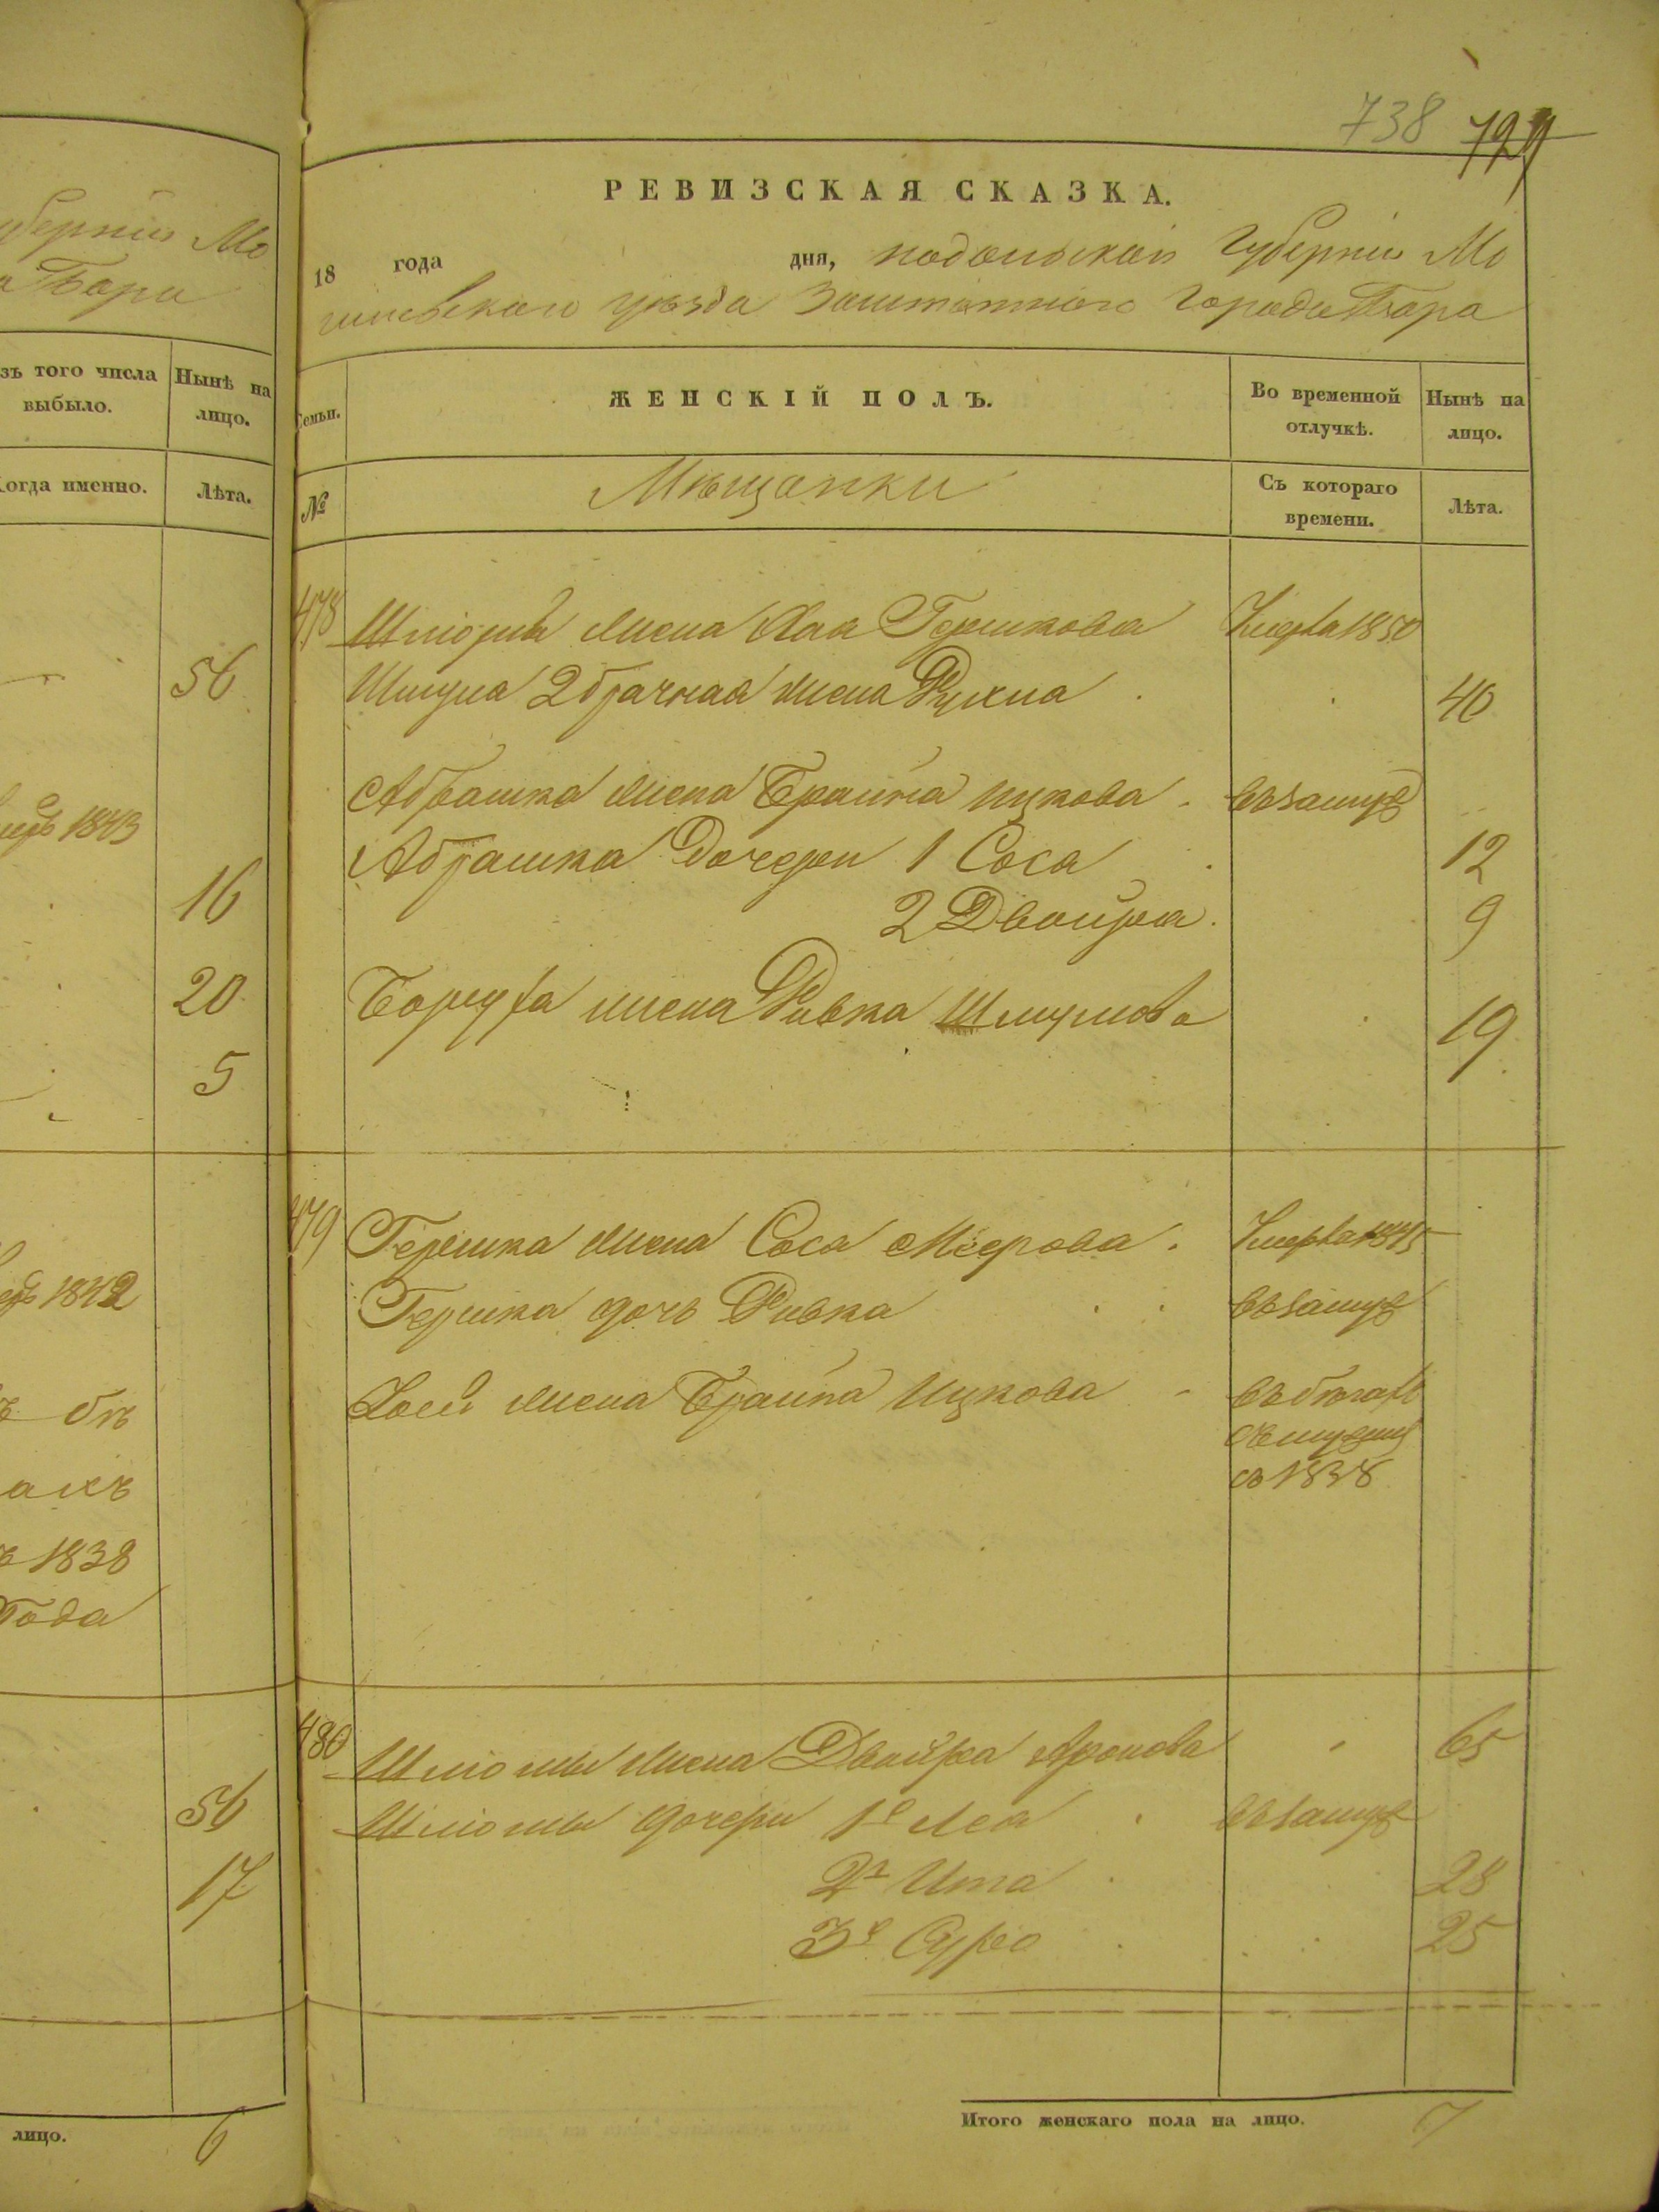 губерніи Мо
а Бара
зъ того числа
выбыло.
Нынѣ на
лицо.
Когда именно.
Лѣта.
56
1843
16
20
5
1842
бѣ
ахъ
1838
Года
56
17
лицо.
6
738 729
РЕВИЗСКАЯ СКАЗКА.
18 года дня, подольской Губерніи Мо
гилевского уѣзда Заштатного Города Бара
Семьи.
ЖЕНСКІЙ ПОЛЪ.
Во временной
отлучкѣ.
Нынѣ на
лицо.
№
Мѣщанки
Съ котораго
времени.
Лѣта.
478 жена Хая Гершкова Умерла 1850
Шмула 2 брачная жена Рухля 40
Абрашка жена Брайна Ицкова въ замуж
Абрашка Дочери 1 Соса 12
2 Двойра 9
Боруха жена Ривка Шмулова 19
479 Гершка жена Соса Меерова Умерла 1845
Гершка дочь Ривка въ замуж
жена Брайна Ицкова въ бѣгах
съ мужем
съ 1838
480 Шліомы жена Двойра Аронова 65
Шліомы дочери 1я Лея въ замуж
2я Ита 28
3я Сура 25
Итого женскаго пола на лицо. 7